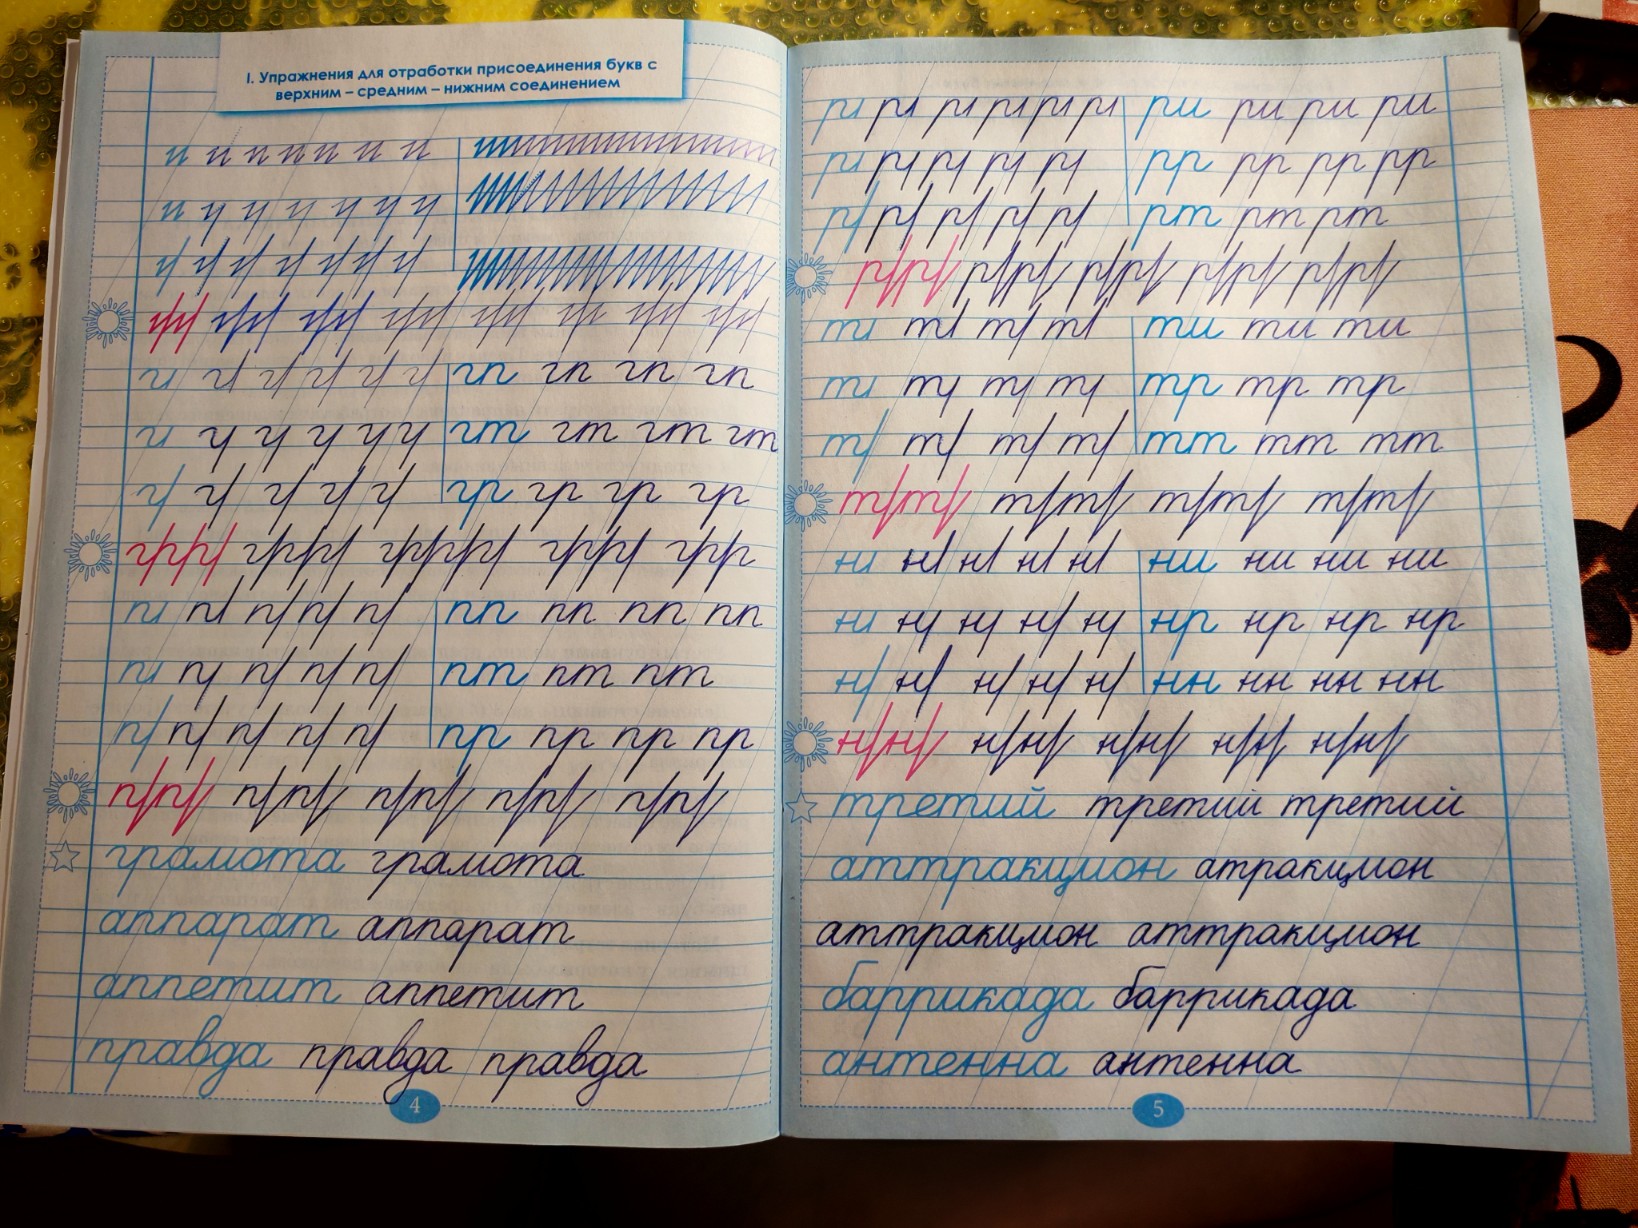 I. Упражнения для отработки присоединения букв с
верхним – средним – нижним соединением
гп гп гп гп
гт гт гт гт
гр гр гр гр
пп пп пп пп
пт пт пт
пр пр пр пр
грамота грамота
аппарат аппарат
аппетит аппетит
правда правда правда
4
ри ри ри ри
рр рр рр рр
рт рт рт
ти ти ти
тр тр тр
тт тт тт
ни ни ни ни
нр нр нр нр
нн нн нн нн
третий третий третий
аттракцион атракцион
аттракцион аттракцион
баррикада баррикада
антенна антенна
5